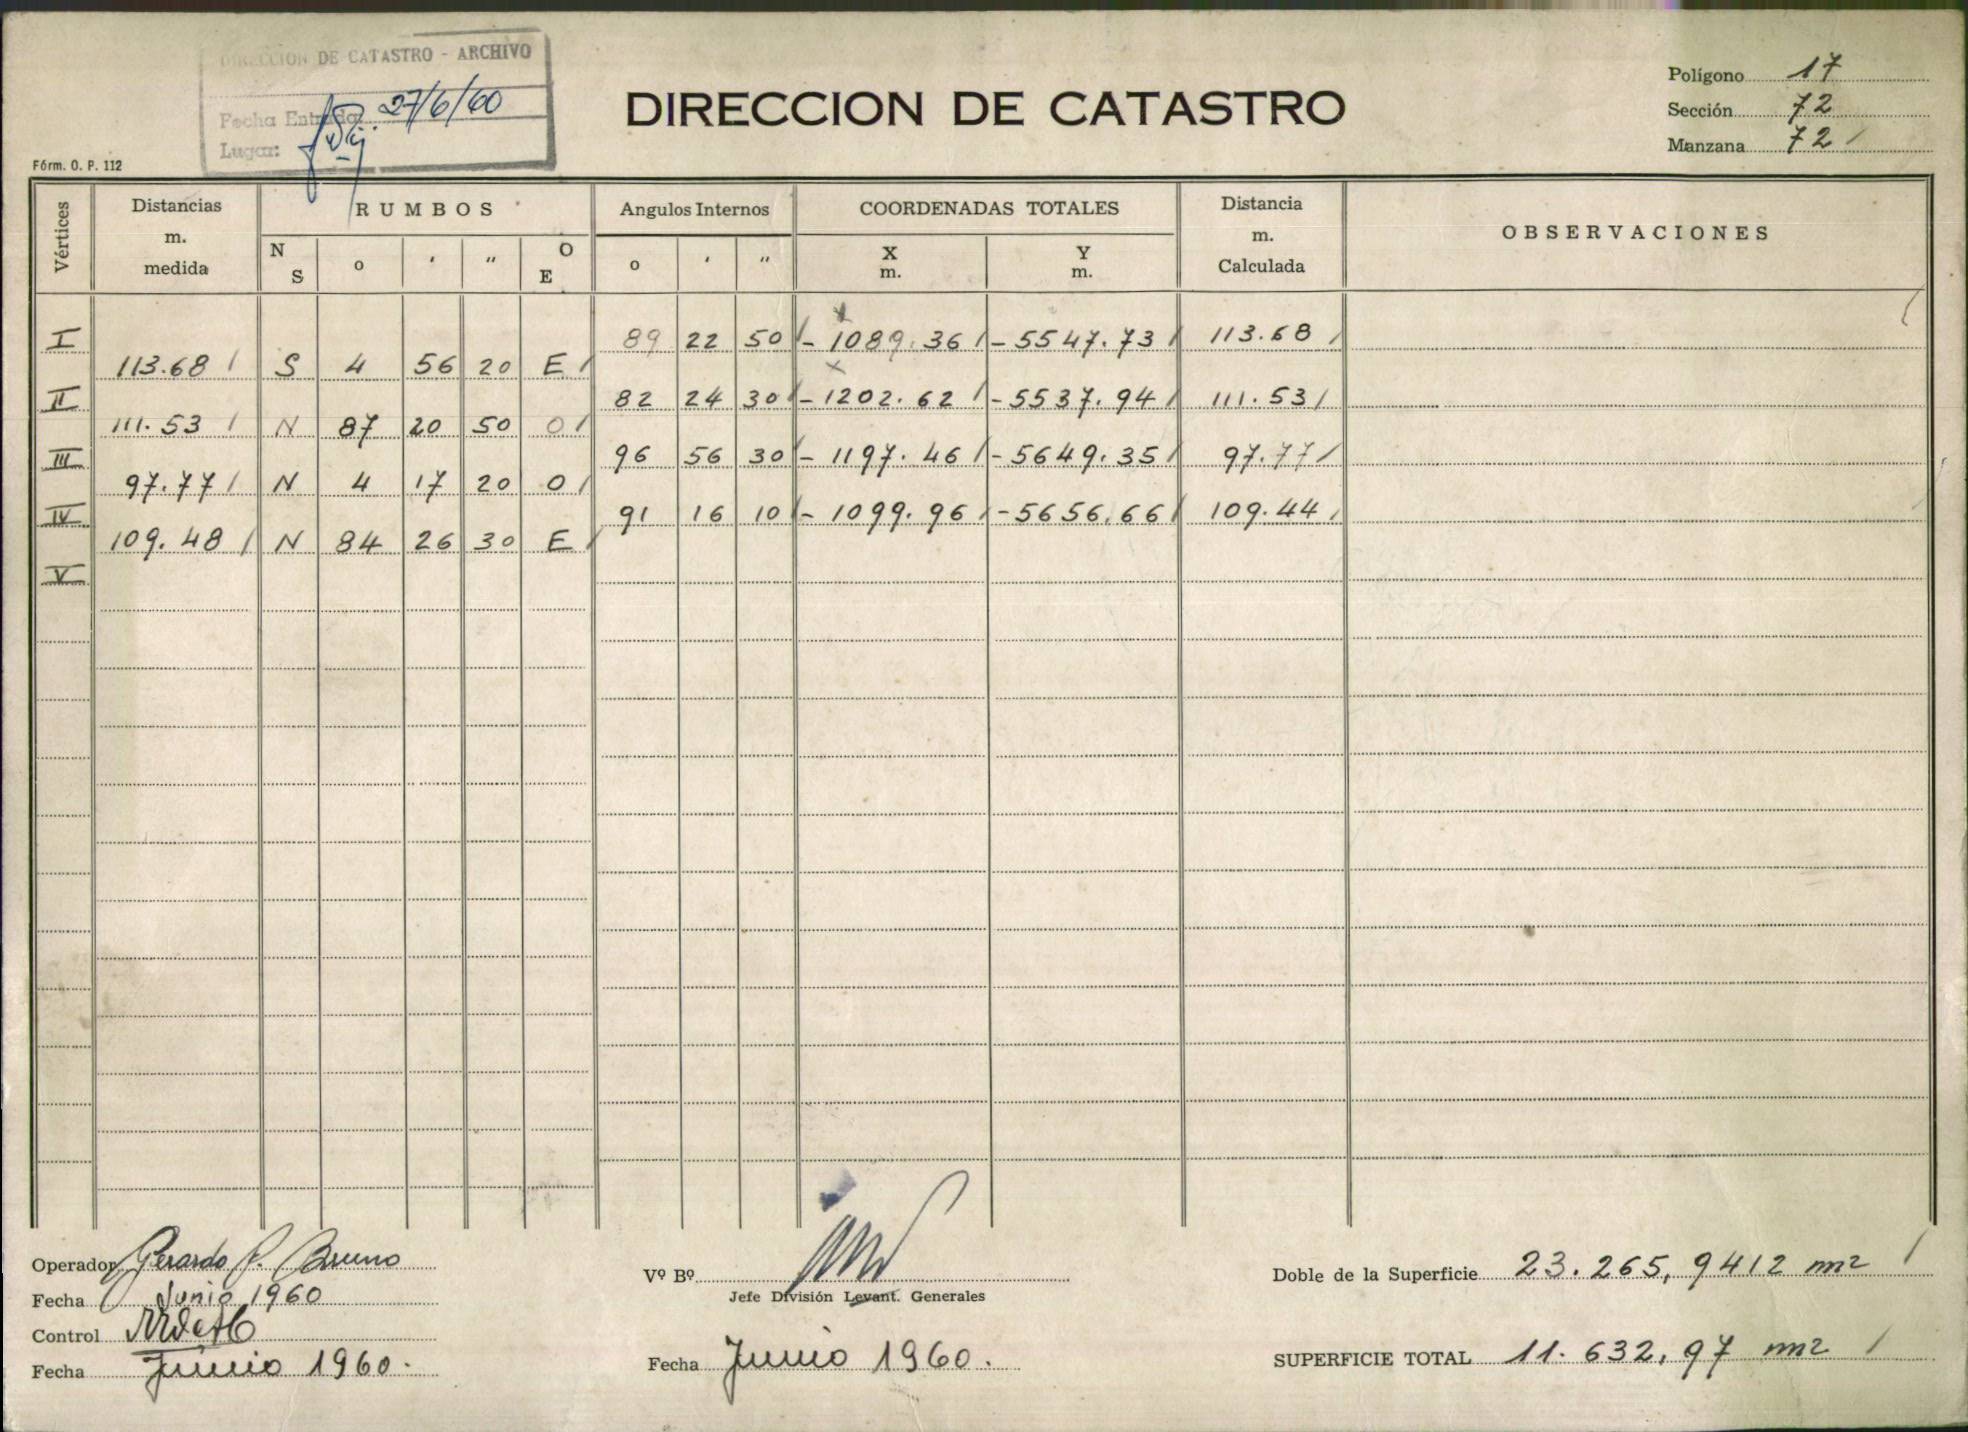 DIRECCION DE CATASTRO - ARCHIVO
Fecha Entrada 27/6/60
Lugar:
DIRECCION DE CATASTRO
Polígono 17
Sección 72
Manzana 72
Fórm. O. P. 112
Vértices
Distancias m. medida
RUMBOS
N S
o
'
"
O E
Angulos Internos
o
'
"
COORDENADAS TOTALES
X m.
Y m.
Distancia m. Calculada
OBSERVACIONES
I 89 22 50 - 1089.36 - 5547.73 113.68
113.68 S 4 56 20 E
II 82 24 30 - 1202.62 - 5537.94 111.53
111.53 N 87 20 50 O
III 96 56 30 - 1197.46 - 5649.35 97.77
97.77 N 4 17 20 O
IV 91 16 10 - 1099.96 - 5656.66 109.44
109.48 N 84 26 30 E
V
Operador Gerardo P. Bruno
Fecha Junio 1960
Control
Fecha Junio 1960.
Vº Bº
Jefe División Levant. Generales
Fecha Junio 1960.
Doble de la Superficie 23.265,9412 m2
SUPERFICIE TOTAL 11.632,97 m2